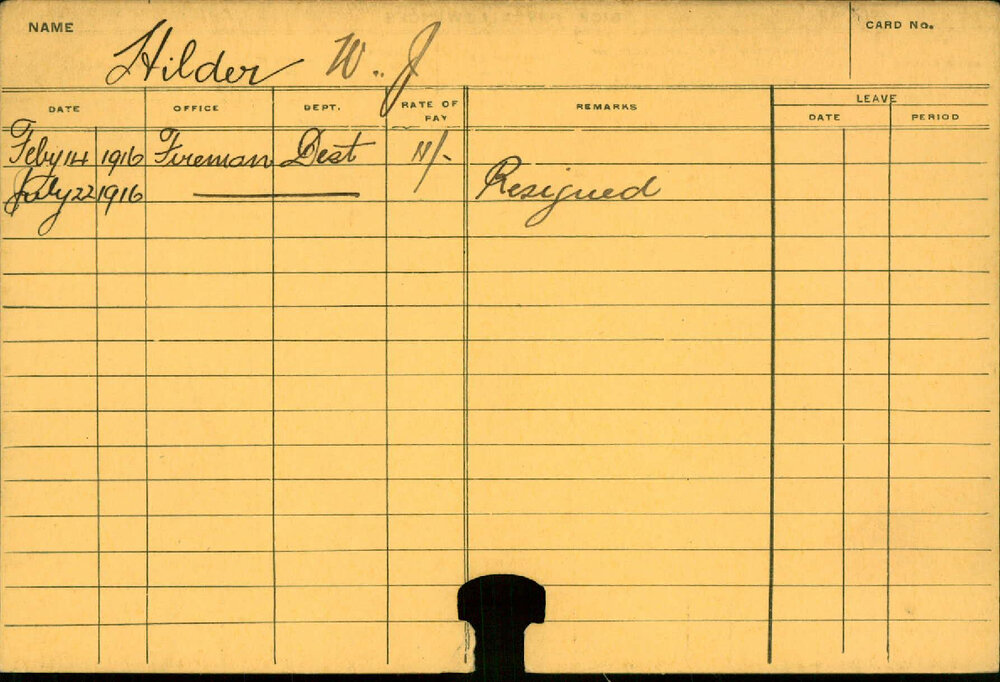 NAME
Hilder W. J
CARD No.
DATE OFFICE DEPT. RATE OF PAY REMARKS LEAVE
DATE PERIOD
Feby 14 1916 Fireman Dest
July 22 1916 Resigned